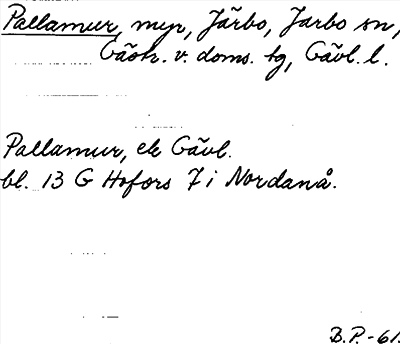 Pallamur, myr, Järbo, Järbo sn,
Gästr. v. doms. tg, Gävl. l.
Pallamur, ek Gävl.
bl. 13 G Hofors 7 i Nordanå.
B.P.-61.